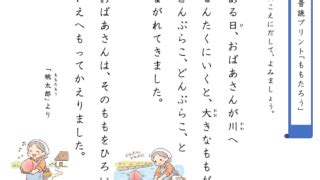 音読プリント「ももたろう」
こえにだして、よみましょう。
ある日、おばあさんが川へ
かわ
せんたくにいくと、大きなももが
おお
どんぶらこ、どんぶらこ、と
ながれてきました。
おばあさんは、そのももをひろい
いえへもってかえりました。
「桃太郎」より
ももたろう